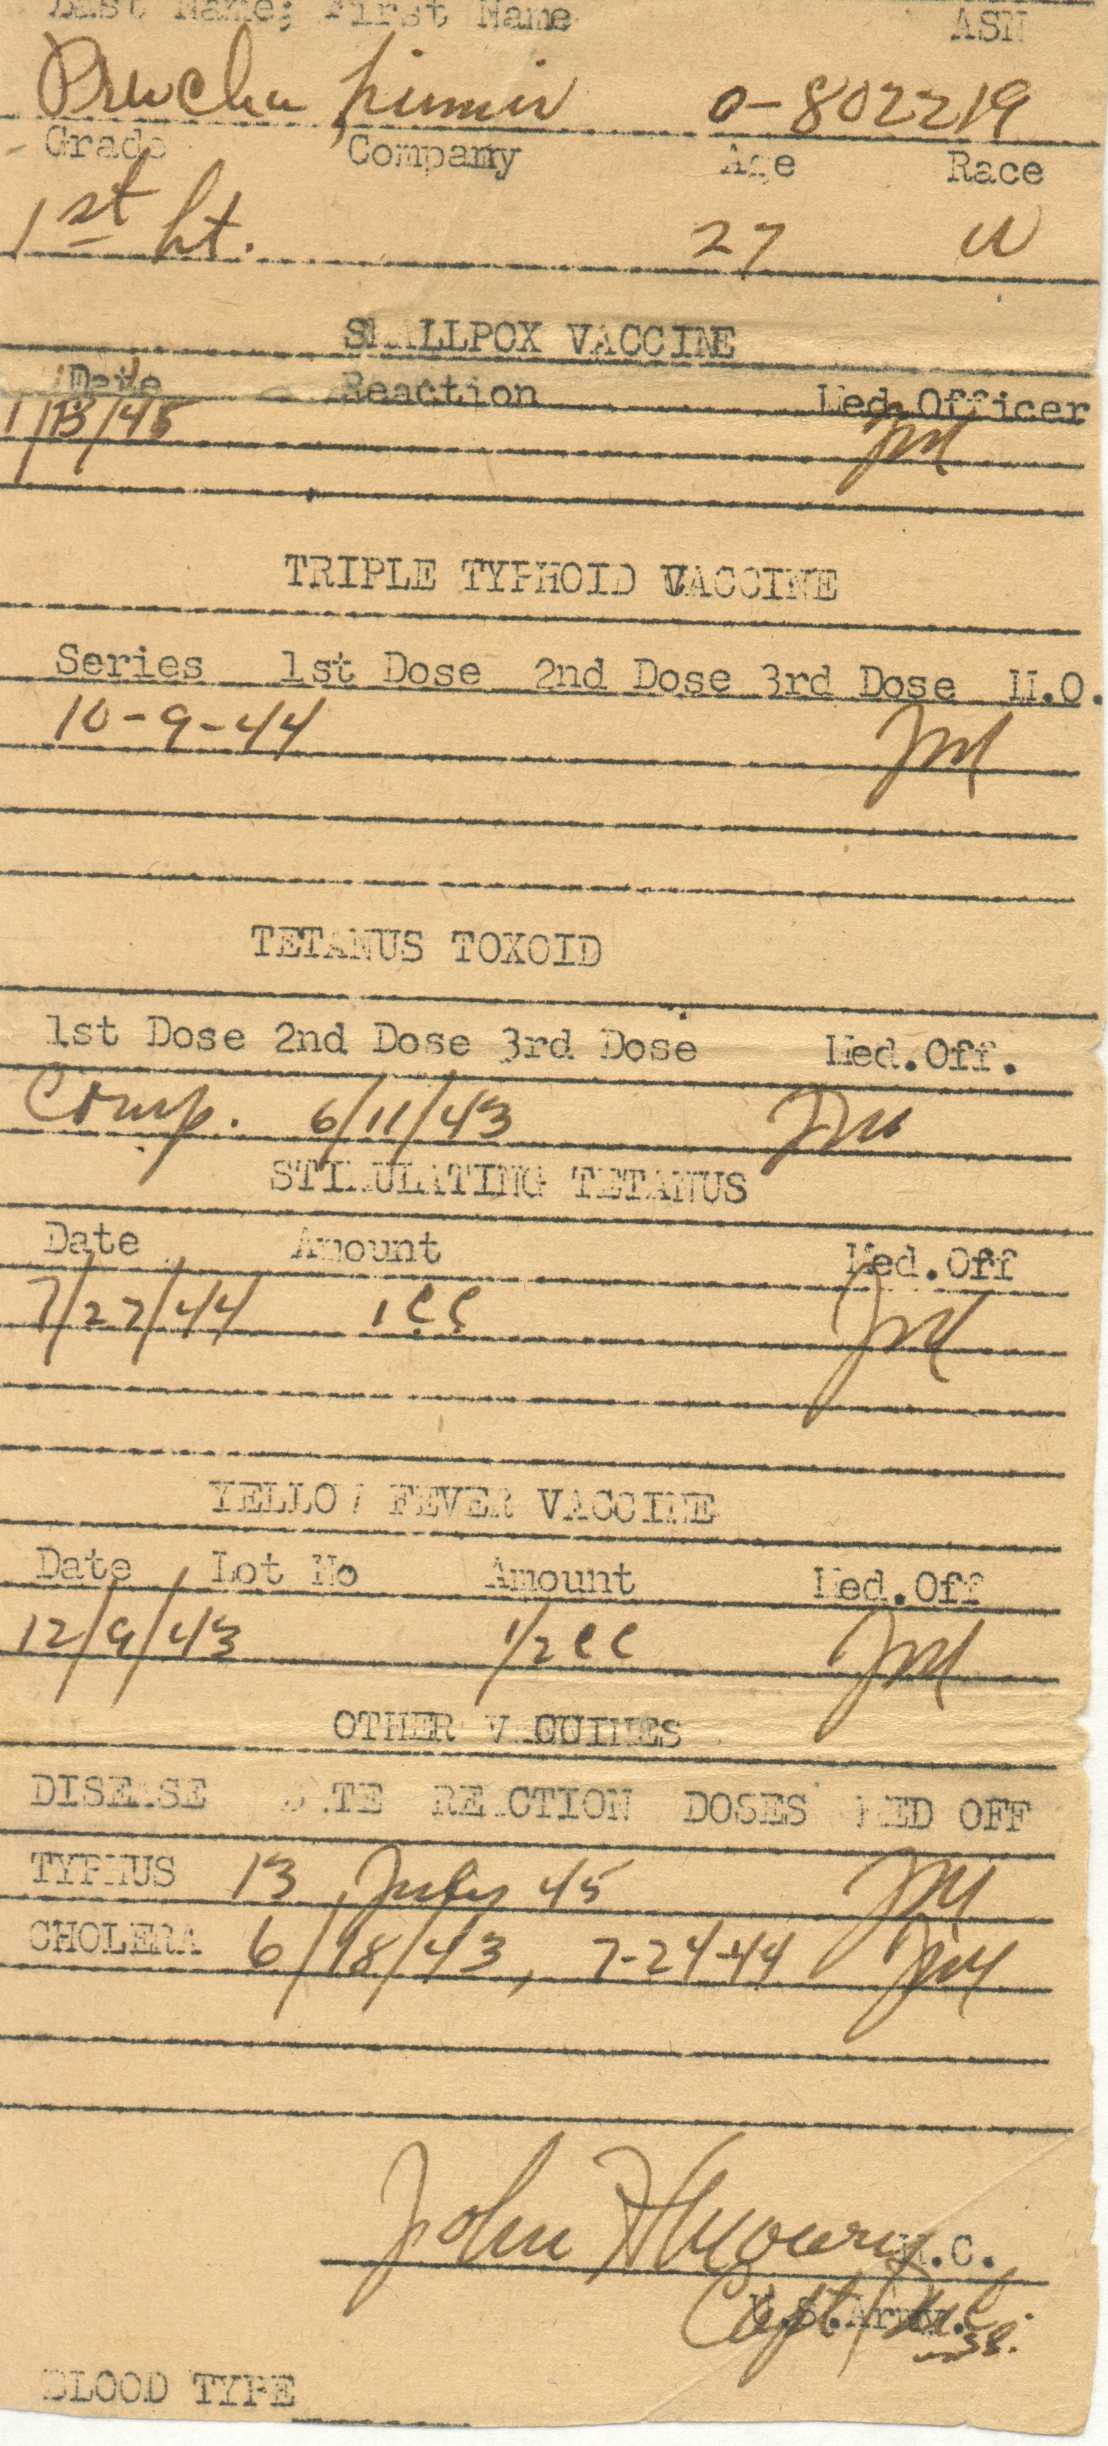 Last Name; First Name ASN
0-802219
Grade Company Age Race
1st Lt. 27 W
SMALLPOX VACCINE
Date Reaction Med.Officer
1/13/45 JM
TRIPLE TYPHOID VACCINE
Series 1st Dose 2nd Dose 3rd Dose M.O.
10-9-44 JM
TETANUS TOXOID
1st Dose 2nd Dose 3rd Dose Med.Off.
Comp. 6/11/43 JM
STIMULATING TETANUS
Date Amount Med.Off
7/27/44 1 CC JM
YELLOW FEVER VACCINE
Date Lot No Amount Med.Off
12/9/43 1/2 CC JM
OTHER VACCINES
DISEASE DATE REACTION DOSES MED OFF
TYPHUS 13 July 45 JM
CHOLERA 6/18/43, 7-24-44 JM
John M.C.
Capt. U.S.Army.
BLOOD TYPE